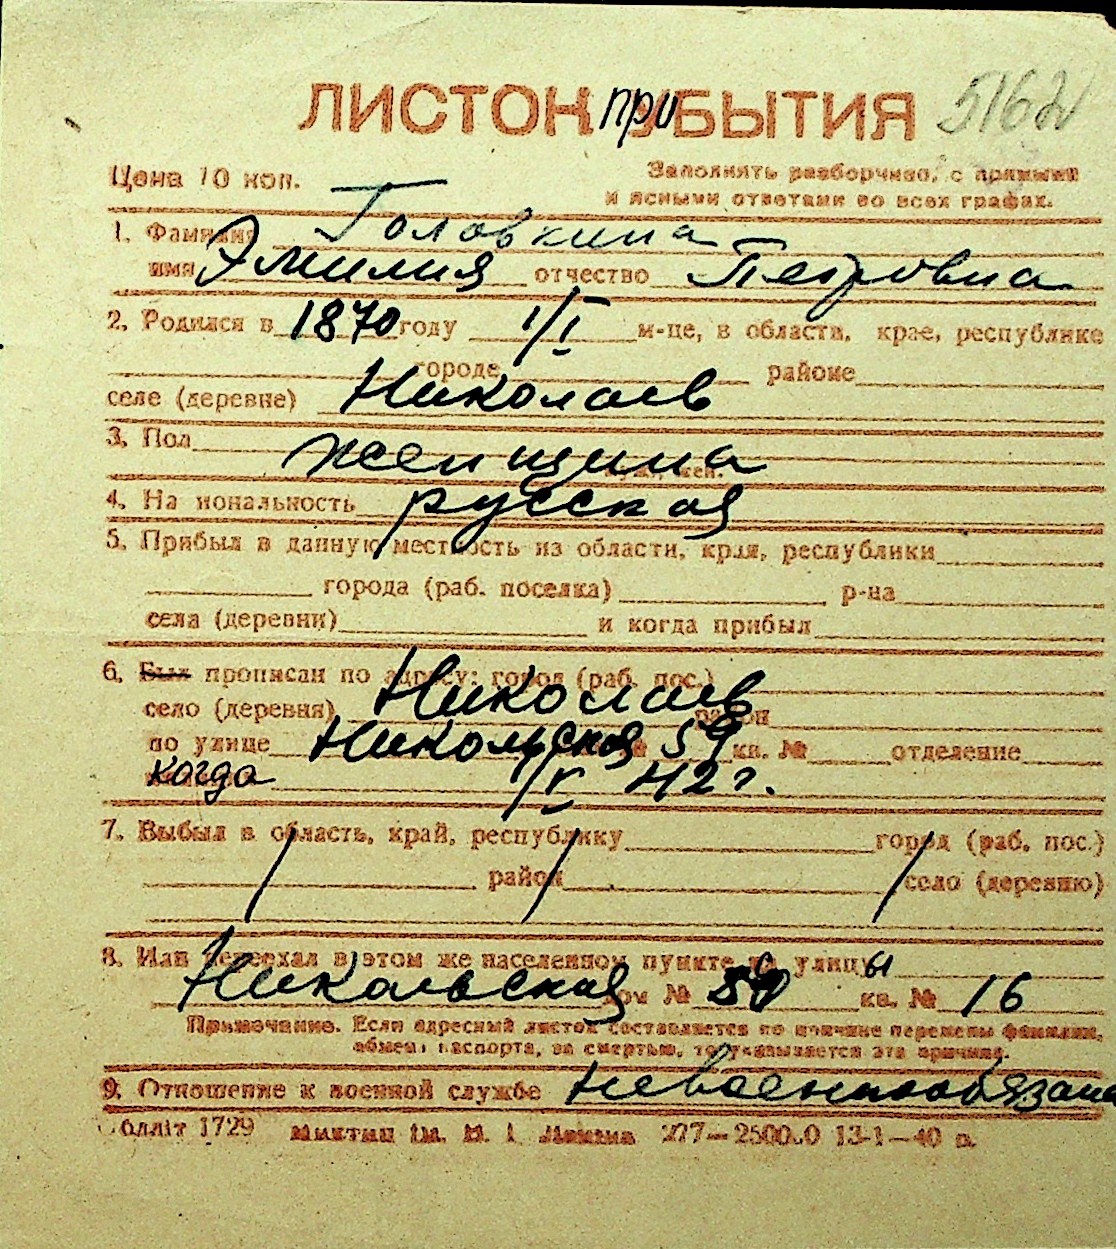 ЛИСТОК при УБЫТИЯ 5162
Цена 10 коп. Заполнять разборчиво, с прямыми
и ясными ответами во всех графах.
1. Фамилия Головкина
имя Эмилия отчество Петровна
2. Родился в 1870 году 1/I м-це, в области, крае, республике
городе районе
селе (деревне) Николаев
3. Пол женщина
муж., жен.
4. Национальность русская
5. Прибыл в данную местность из области, края, республики
города (раб. поселка) р-на
села (деревни) и когда прибыл
6. Был прописан по адресу: город (раб. пос.)
село (деревня) Николаев район
по улице Никольская 59 кв. № отделение
когда 1/V 42 г.
7. Выбыл в область, край, республику город (раб. пос.)
район село (деревню)
8. Или переехал в этом же населенном пункте с улицы
Никольская дом № 59 кв. № 16
Примечание. Если адресный листок составляется по причине перемены фамилии,
обмена паспорта, за смертью, то указывается эта причина.
9. Отношение к военной службе невоеннообязана
Облліт 1729 Миктип ім. В. І. Леніна 277—2500.0 13-1—40 р.